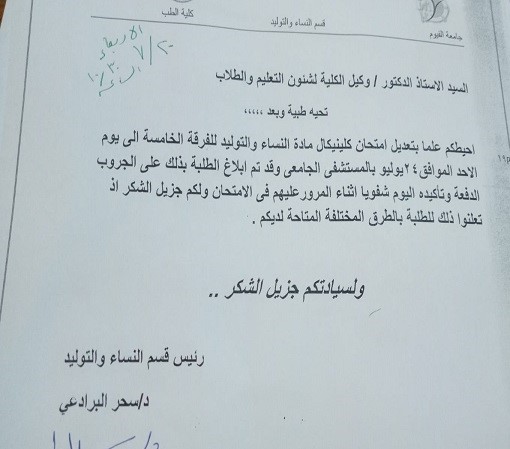 كلية الطب
قسم النساء والتوليد
جامعة الفيوم
الاربعاء
٧/٢٠
السيد الاستاذ الدكتور / وكيل الكلية لشئون التعليم والطلاب
تحيه طبية وبعد ،،،،،
احيطكم علما بتعديل امتحان كلينيكال مادة النساء والتوليد للفرقة الخامسة الى يوم
الاحد الموافق ٢٤ يوليو بالمستشفى الجامعى وقد تم ابلاغ الطلبة بذلك على الجروب
الدفعة وتأكيده اليوم شفويا اثناء المرور عليهم فى الامتحان ولكم جزيل الشكر اذ
تعلنوا ذلك للطلبة بالطرق المختلفة المتاحة لديكم .
ولسيادتكم جزيل الشكر ..
رئيس قسم النساء والتوليد
د/سحر البرادعي